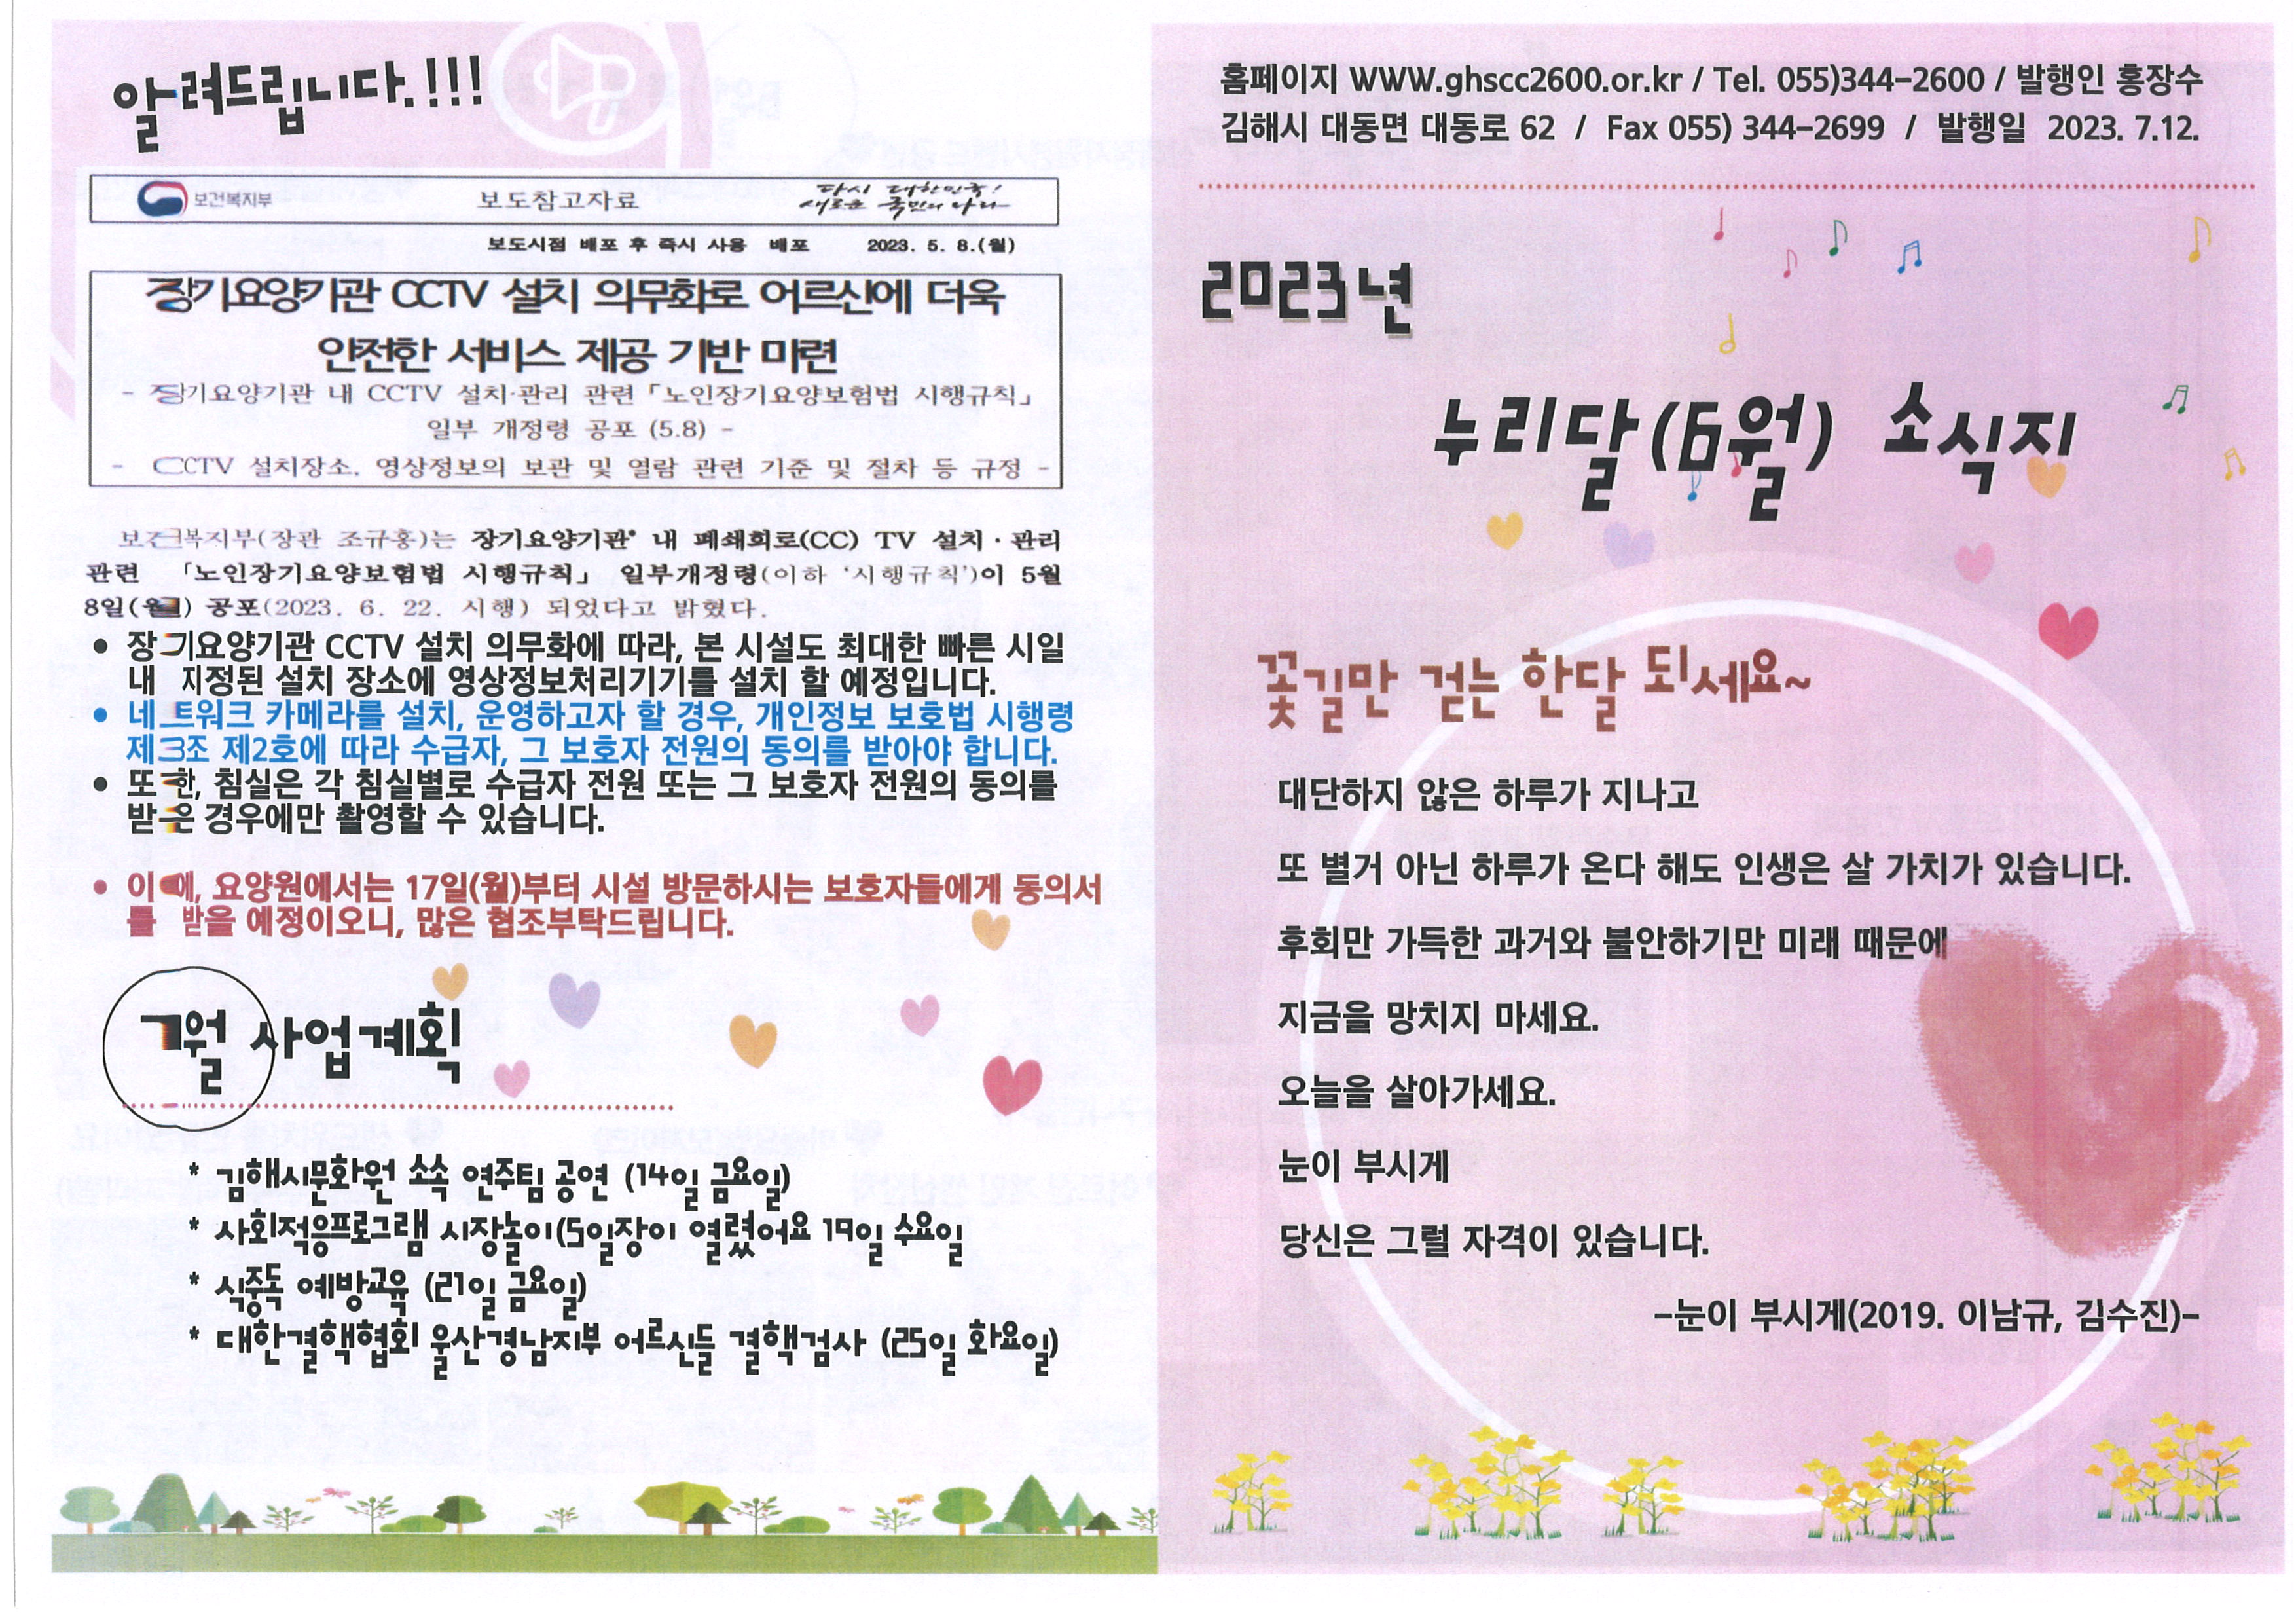 알려드립니다.!!!
보건복지부 보도참고자료 다시 대한민국! 새로운 국민의 나라
보도시점 배포 후 즉시 사용 배포 2023. 5. 8.(월)
장기요양기관 CCTV 설치 의무화로 어르신에 더욱
안전한 서비스 제공 기반 마련
- 장기요양기관 내 CCTV 설치·관리 관련 「노인장기요양보험법 시행규칙」
일부 개정령 공포 (5.8) -
- CCTV 설치장소, 영상정보의 보관 및 열람 관련 기준 및 절차 등 규정 -
보건복지부(장관 조규홍)는 장기요양기관* 내 폐쇄회로(CC) TV 설치·관리
관련 「노인장기요양보험법 시행규칙」 일부개정령(이하 '시행규칙')이 5월
8일(월) 공포(2023. 6. 22. 시행) 되었다고 밝혔다.
• 장기요양기관 CCTV 설치 의무화에 따라, 본 시설도 최대한 빠른 시일
내 지정된 설치 장소에 영상정보처리기기를 설치 할 예정입니다.
• 네트워크 카메라를 설치, 운영하고자 할 경우, 개인정보 보호법 시행령
제3조 제2호에 따라 수급자, 그 보호자 전원의 동의를 받아야 합니다.
• 또한, 침실은 각 침실별로 수급자 전원 또는 그 보호자 전원의 동의를
받은 경우에만 촬영할 수 있습니다.
• 이에, 요양원에서는 17일(월)부터 시설 방문하시는 보호자들에게 동의서
를 받을 예정이오니, 많은 협조부탁드립니다.
7월 사업계획
* 김해시문화원 소속 연주팀 공연 (14일 금요일)
* 사회적응프로그램 시장놀이(5일장이 열렸어요 19일 수요일
* 식중독 예방교육 (21일 금요일)
* 대한결핵협회 울산경남지부 어르신들 결핵검사 (25일 화요일)
홈페이지 WWW.ghscc2600.or.kr / Tel. 055)344-2600 / 발행인 홍장수
김해시 대동면 대동로 62 / Fax 055) 344-2699 / 발행일 2023. 7.12.
2023년
누리달(6월) 소식지
꽃길만 걷는 한달 되세요~
대단하지 않은 하루가 지나고
또 별거 아닌 하루가 온다 해도 인생은 살 가치가 있습니다.
후회만 가득한 과거와 불안하기만 미래 때문에
지금을 망치지 마세요.
오늘을 살아가세요.
눈이 부시게
당신은 그럴 자격이 있습니다.
-눈이 부시게(2019. 이남규, 김수진)-